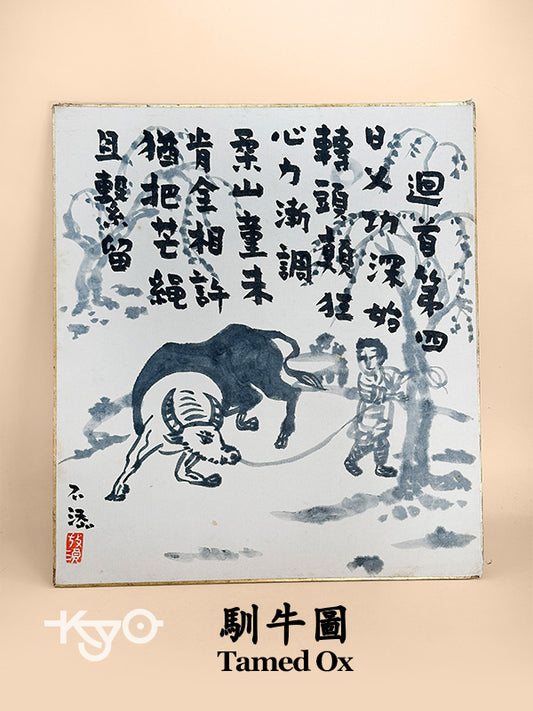 迴首第四
日久功深始
轉頭顛狂
心力漸調
柔山童未
肯全相許
猶把芒繩
且繫留
KYO
馴牛圖
Tamed Ox